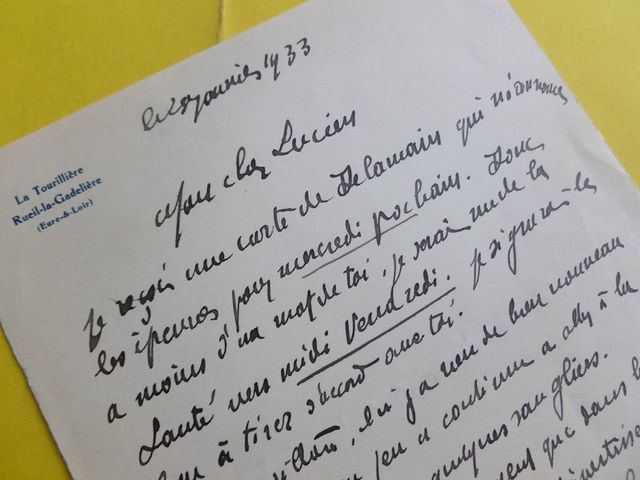 le 28 janvier 1933
La Tourillière
Rueil-la-Gadelière
(Eure-&-Loir)
Mon cher Lucien
Je reçois une carte de Delamain qui m'annonce
les épreuves pour mercredi prochain. Donc
a moins d'un mot de toi, je serai rue de la
Santé vers midi Vendredi. Je signerai les
bon à tirer d'accord avec toi.
ici, il n'y a rien de bien nouveau
peu a continué a la
quelques sangliers.
que dans